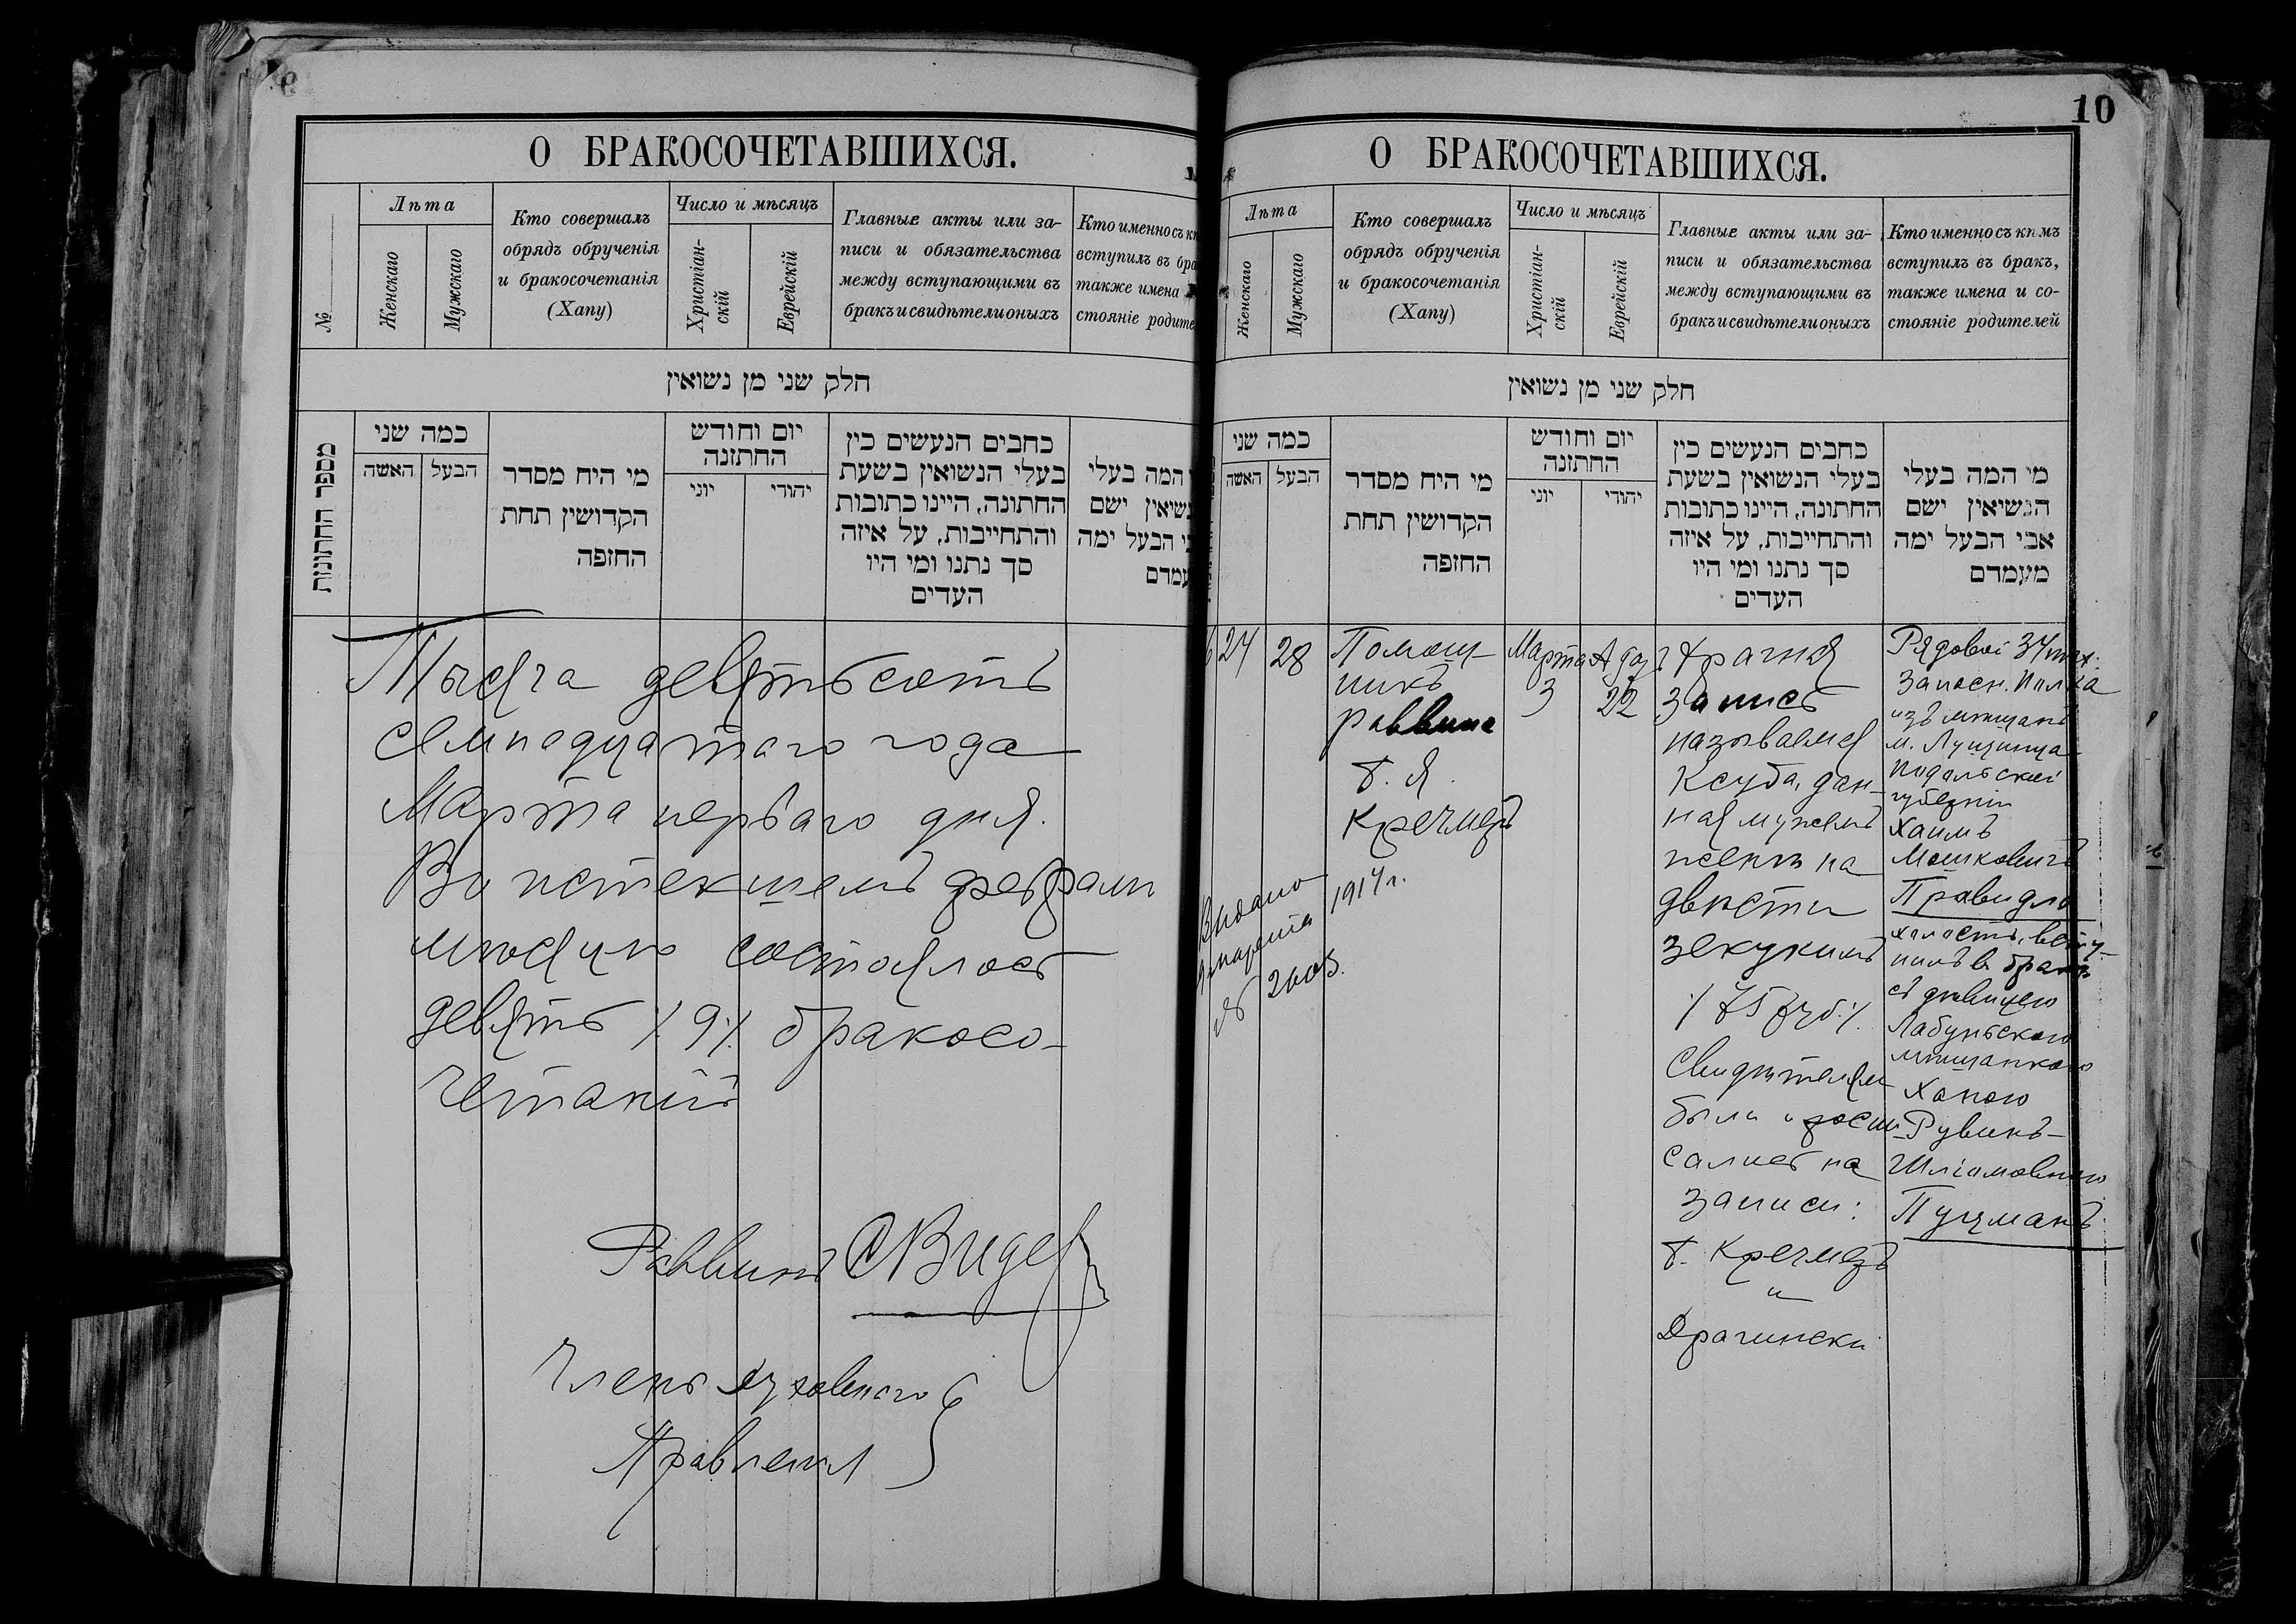 О БРАКОСОЧЕТАВШИХСЯ.
№
Лѣта
Женскаго
Мужскаго
Кто совершалъ
обрядъ обрученія
и бракосочетанія
(Хапу)
Число и мѣсяцъ
Христіан-
скій
Еврейскій
Главные акты или за-
писи и обязательства
между вступающими въ
бракъ и свидѣтели оныхъ
Кто именно съ к
вступилъ въ бра
также имена
стояніе родите
חלק שני מן נשואין
מספר החתונות
כמה שני
האשה
הבעל
מי היח מסדר
הקדושין תחת
החופה
יום וחודש
החתונה
יוני
יהודי
כתבים הנעשים בין
בעלי הנשואין בשעת
החתונה, היינו כתובות
והתחייבות, על איזה
סך נתנו ומי היו
העדים
המה בעלי
נשיאין ישם
בי הבעל ימה
עמדם
Тысяча девятьсотъ
семнадцатаго года
Марта перваго дня.
Въ истекшемъ февралѣ
мѣсяцѣ состоялось
девять /.9/. бракосо-
четаній
Раввинъ СВидер
Члены Духовнаго
Правленія
10
О БРАКОСОЧЕТАВШИХСЯ.
Лѣта
Женскаго
Мужскаго
Кто совершалъ
обрядъ обрученія
и бракосочетанія
(Хапу)
Число и мѣсяцъ
Христіан-
скій
Еврейскій
Главные акты или за-
писи и обязательства
между вступающими въ
бракъ и свидѣтели оныхъ
Кто именно съ кѣмъ
вступилъ въ бракъ,
также имена и со-
стояніе родителей
חלק שני מן נשואין
כמה שני
האשה
הבעל
מי היח מסדר
הקדושין תחת
החופה
יום וחודש
החתונה
יוני
יהודי
כתבים הנעשים בין
בעלי הנשואין בשעת
החתונה, היינו כתובות
והתחייבות, על איזה
סך נתנו ומי היו
העדים
מי המה בעלי
הנשיאין ישם
אבי הבעל ימה
מעמדם
24
28
Помощ-
никъ
раввина
Т. Я.
Кречмеръ
Марта
3
Адаръ
22
Брачная
запись
называемая
Ксуба, дан-
ная мужемъ
женѣ на
двѣсти
зекукимъ
/.75 руб./.
Свидѣтелями
были и распи-
сались на
записи:
Т. Кречмеръ
и
Драчински
Рядовой 34 пѣх.
запасн. полка
изъ мѣщанъ
м. Лучинца
Подольской
губерніи
Хаимъ
Мошковичъ
Правидло
холостъ, всту-
пилъ въ бракъ
съ дѣвицею
Лабунскою
мѣщанкою
Ханою
Рувинъ-
Шліомовною
Пучманъ
Выдано
9 марта 1917 г.
№ 2005.